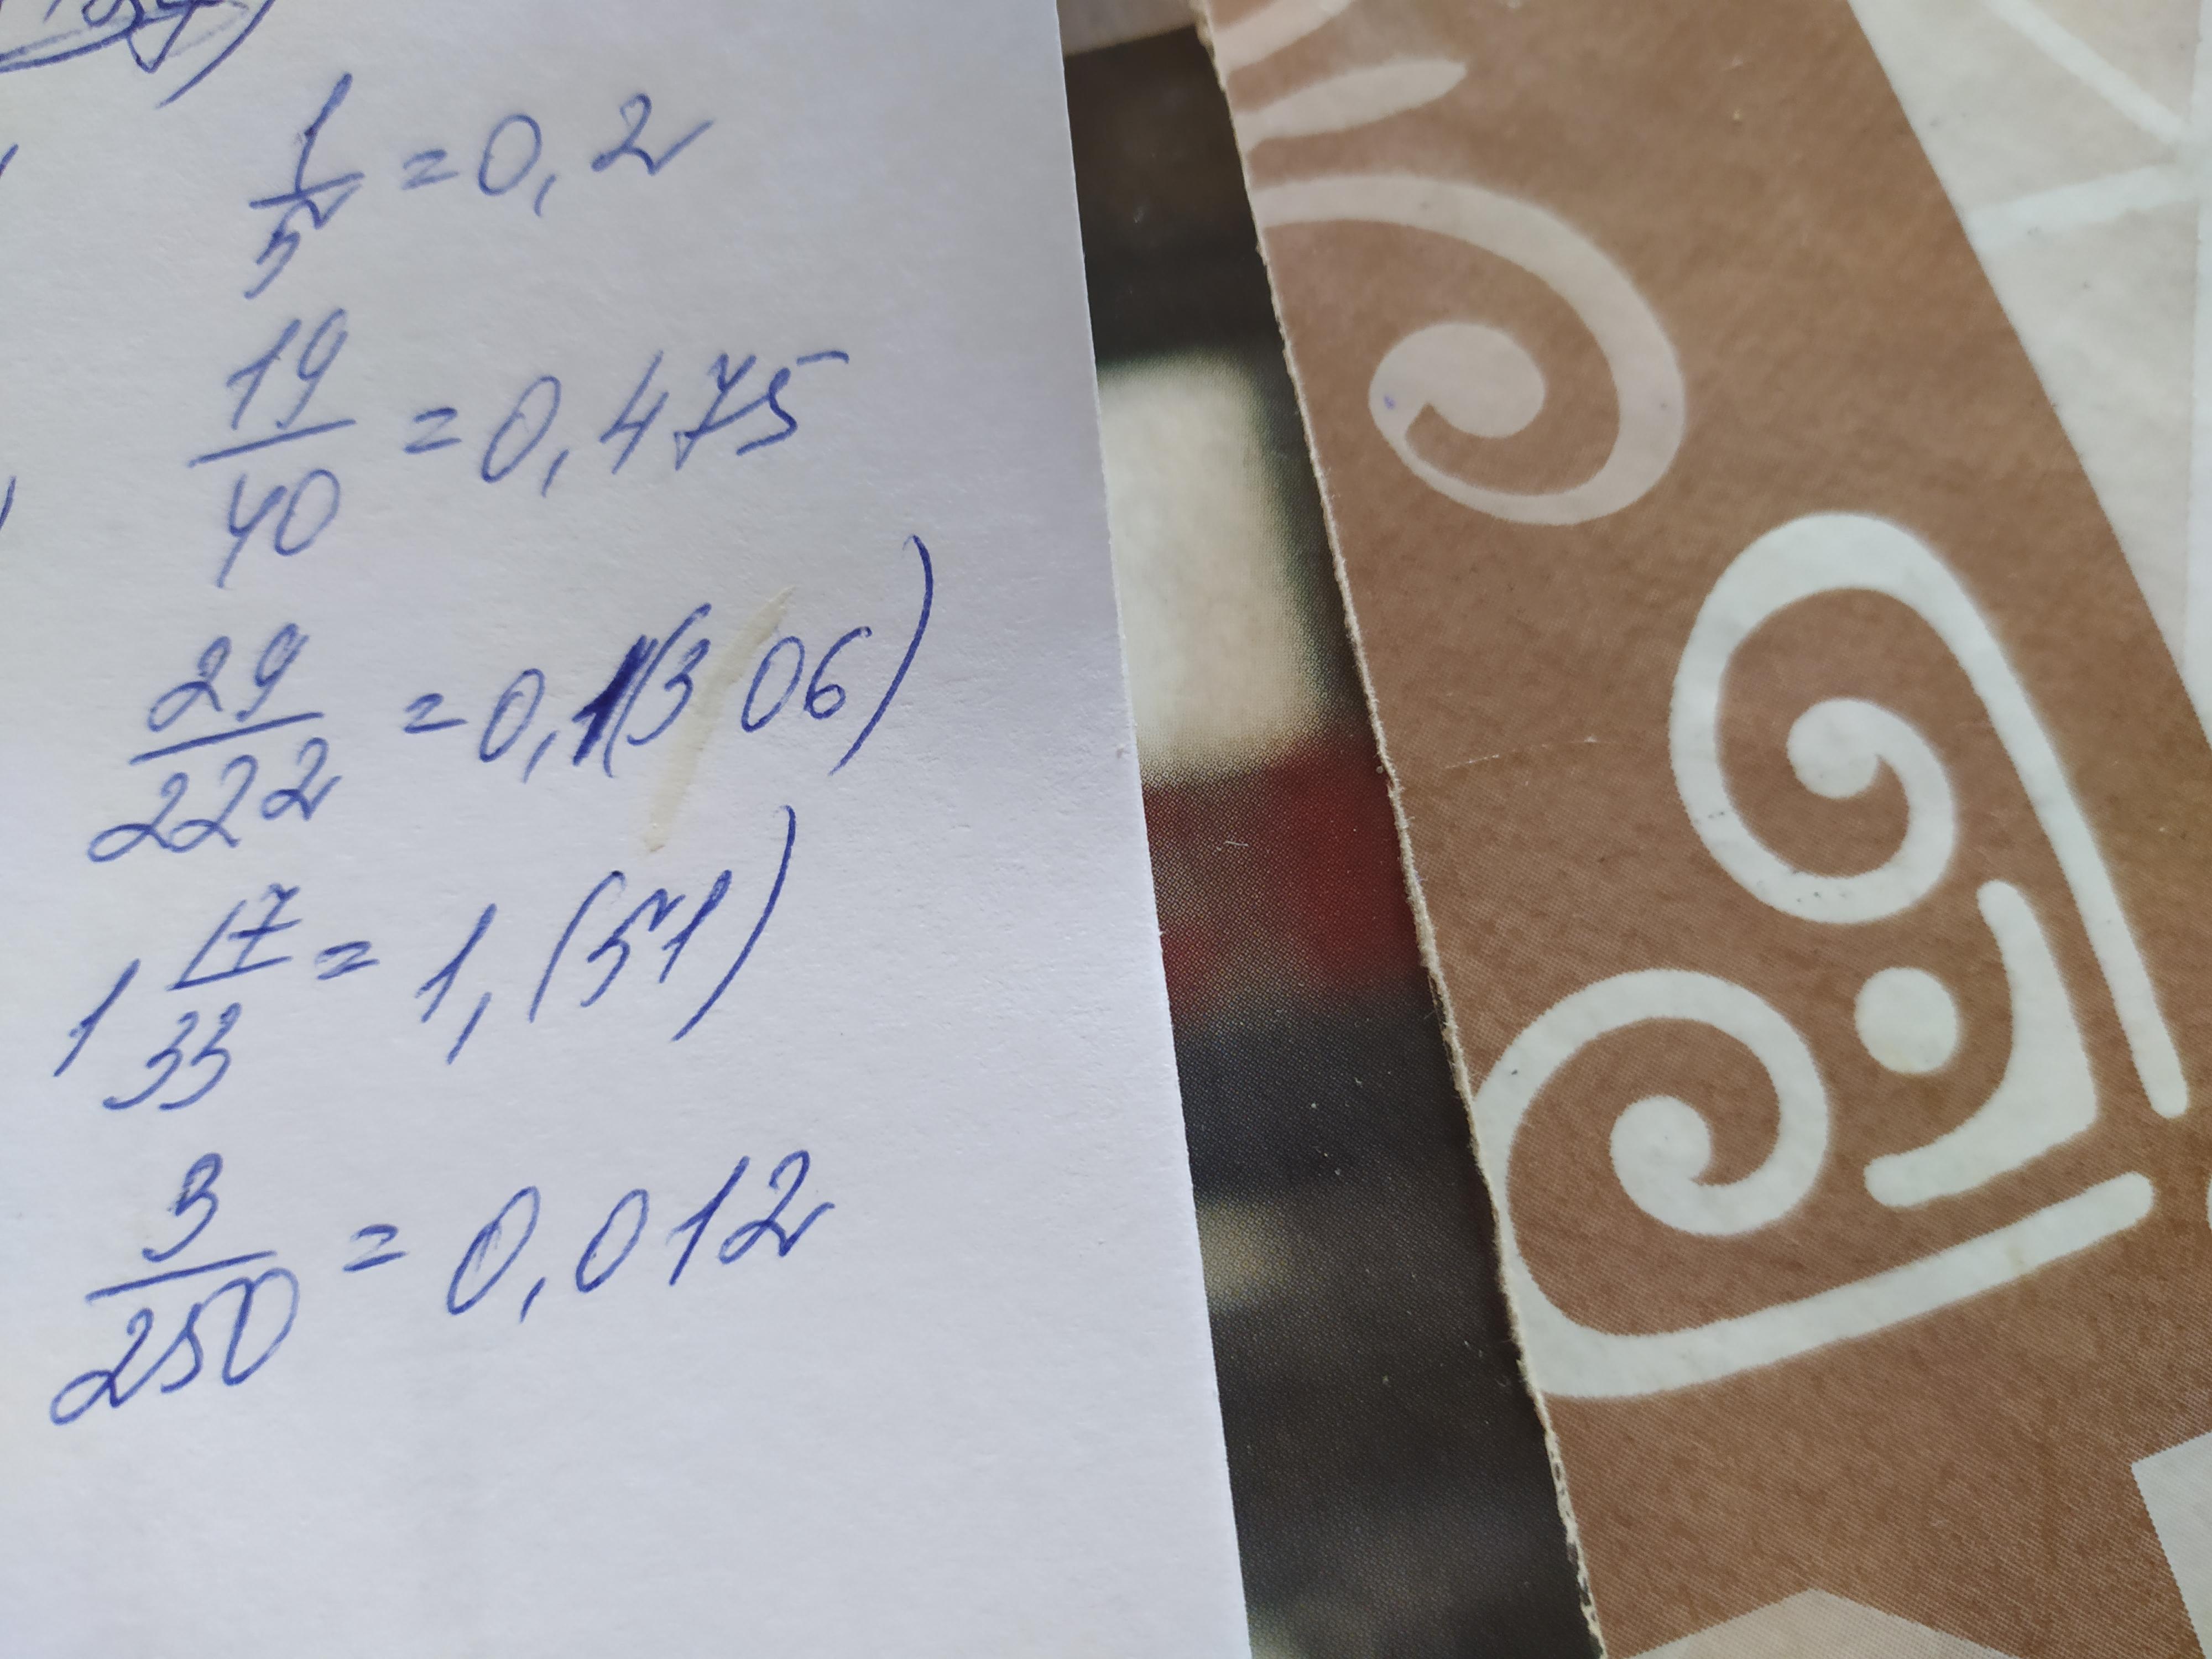 1/5 = 0,2
19/40 = 0,475
29/222 = 0,1(306)
1 17/33 = 1,(51)
3/250 = 0,012